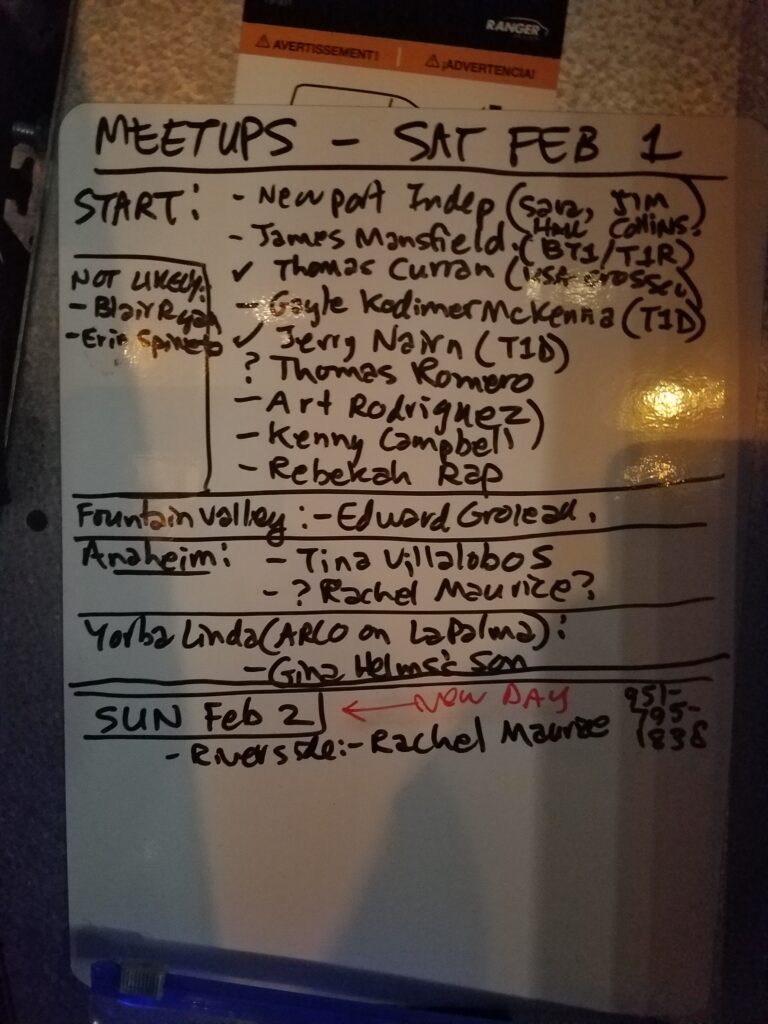 RANGER
AVERTISSEMENT!
¡ADVERTENCIA!
MEETUPS - SAT FEB 1
START: - Newport Indep (Sara, JIM
Hall Collins.
- James Mansfield. (BT1/T1R)
✓ Thomas Curran (USA crosser)
- Gayle Kodimer McKenna (T1D)
✓ Jerry Nairn (T1D)
? Thomas Romero
- Art Rodriguez)
- Kenny Campbell)
- Rebekah Rap
NOT LIKELY:
- Blair Ryan
- Erin
Fountain Valley: - Edward Groleau.
Anaheim: - Tina Villalobos
- ? Rachel Maurice?
Yorba Linda (ARCO on La Palma):
- Gina Helms's Son
SUN Feb 2 ← NEW DAY
951-
795-
1838
- Riverside: - Rachel Maurice